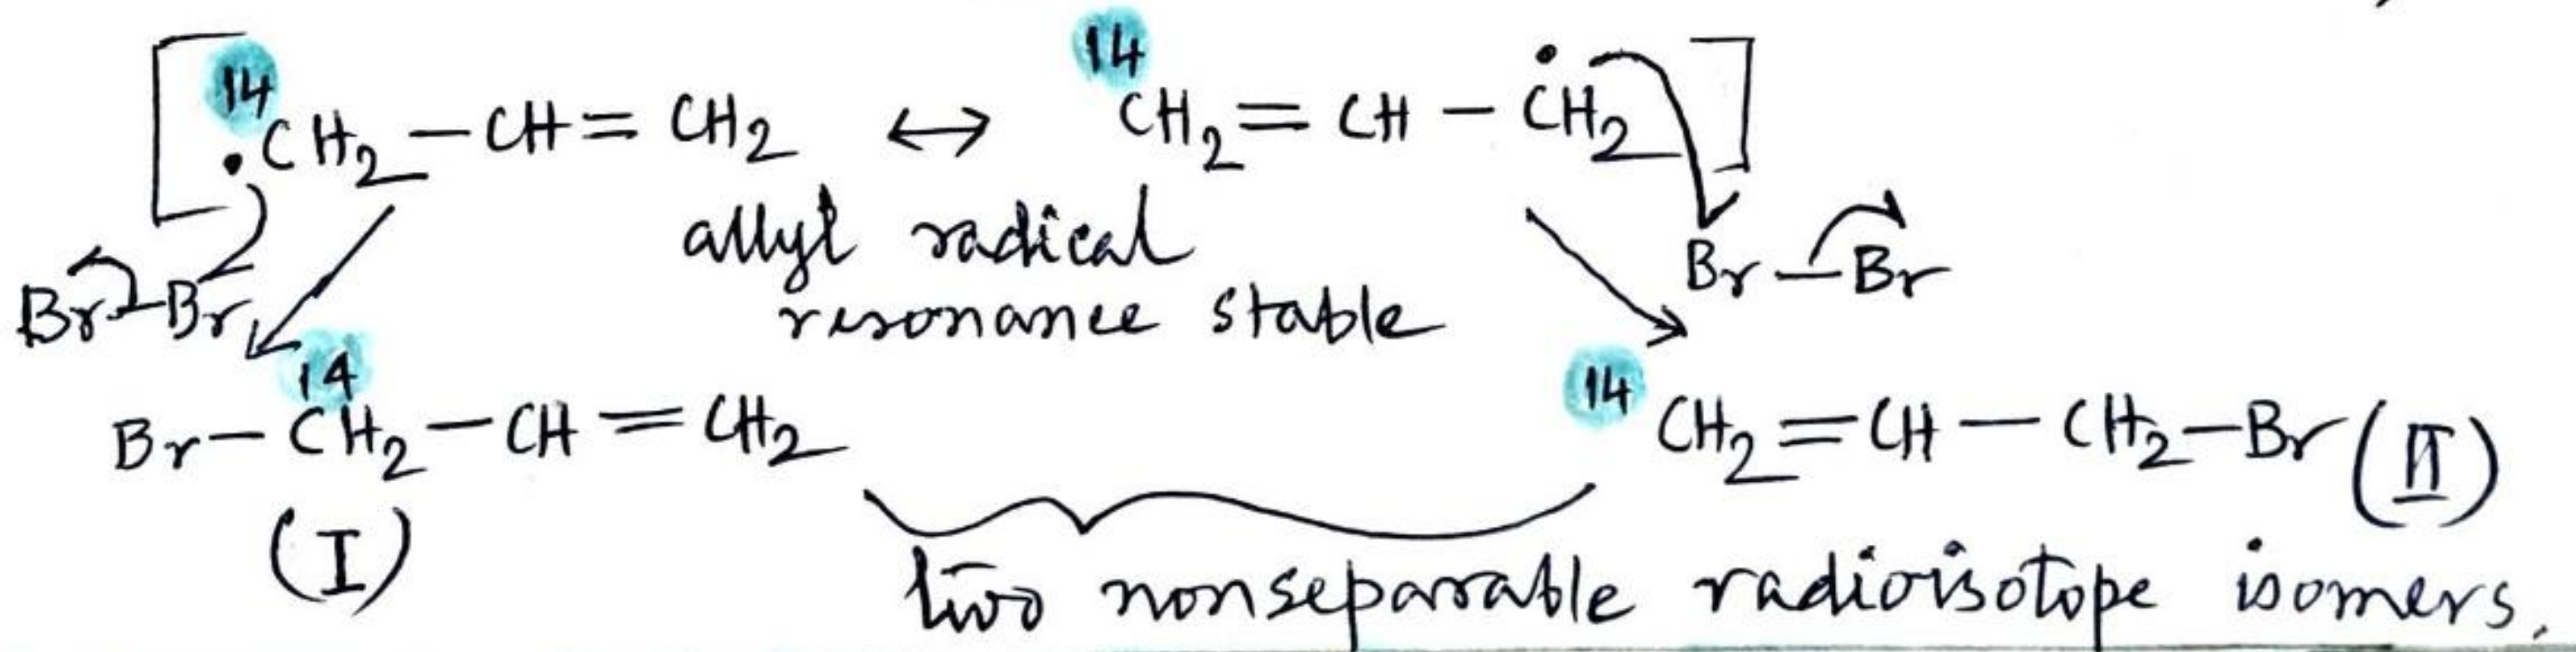 [ ¹⁴•CH₂ – CH = CH₂ ↔ ¹⁴CH₂ = CH – ĊH₂ ]
allyl radical
resonance stable
Br – Br
Br – Br
Br – ¹⁴CH₂ – CH = CH₂
(I)
¹⁴CH₂ = CH – CH₂ – Br (II)
two nonseparable radioisotope isomers.